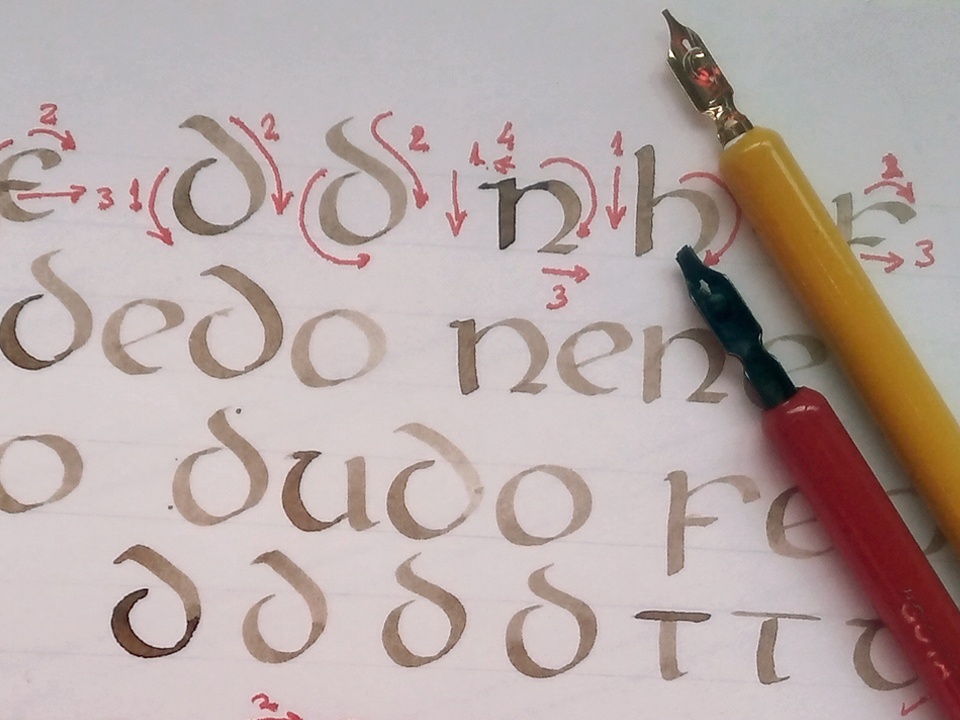 2 2 2 1 4 1 2
e 3 1 d d n h f 3
3
dedo nen
o dudo fe
d d d d t t
2